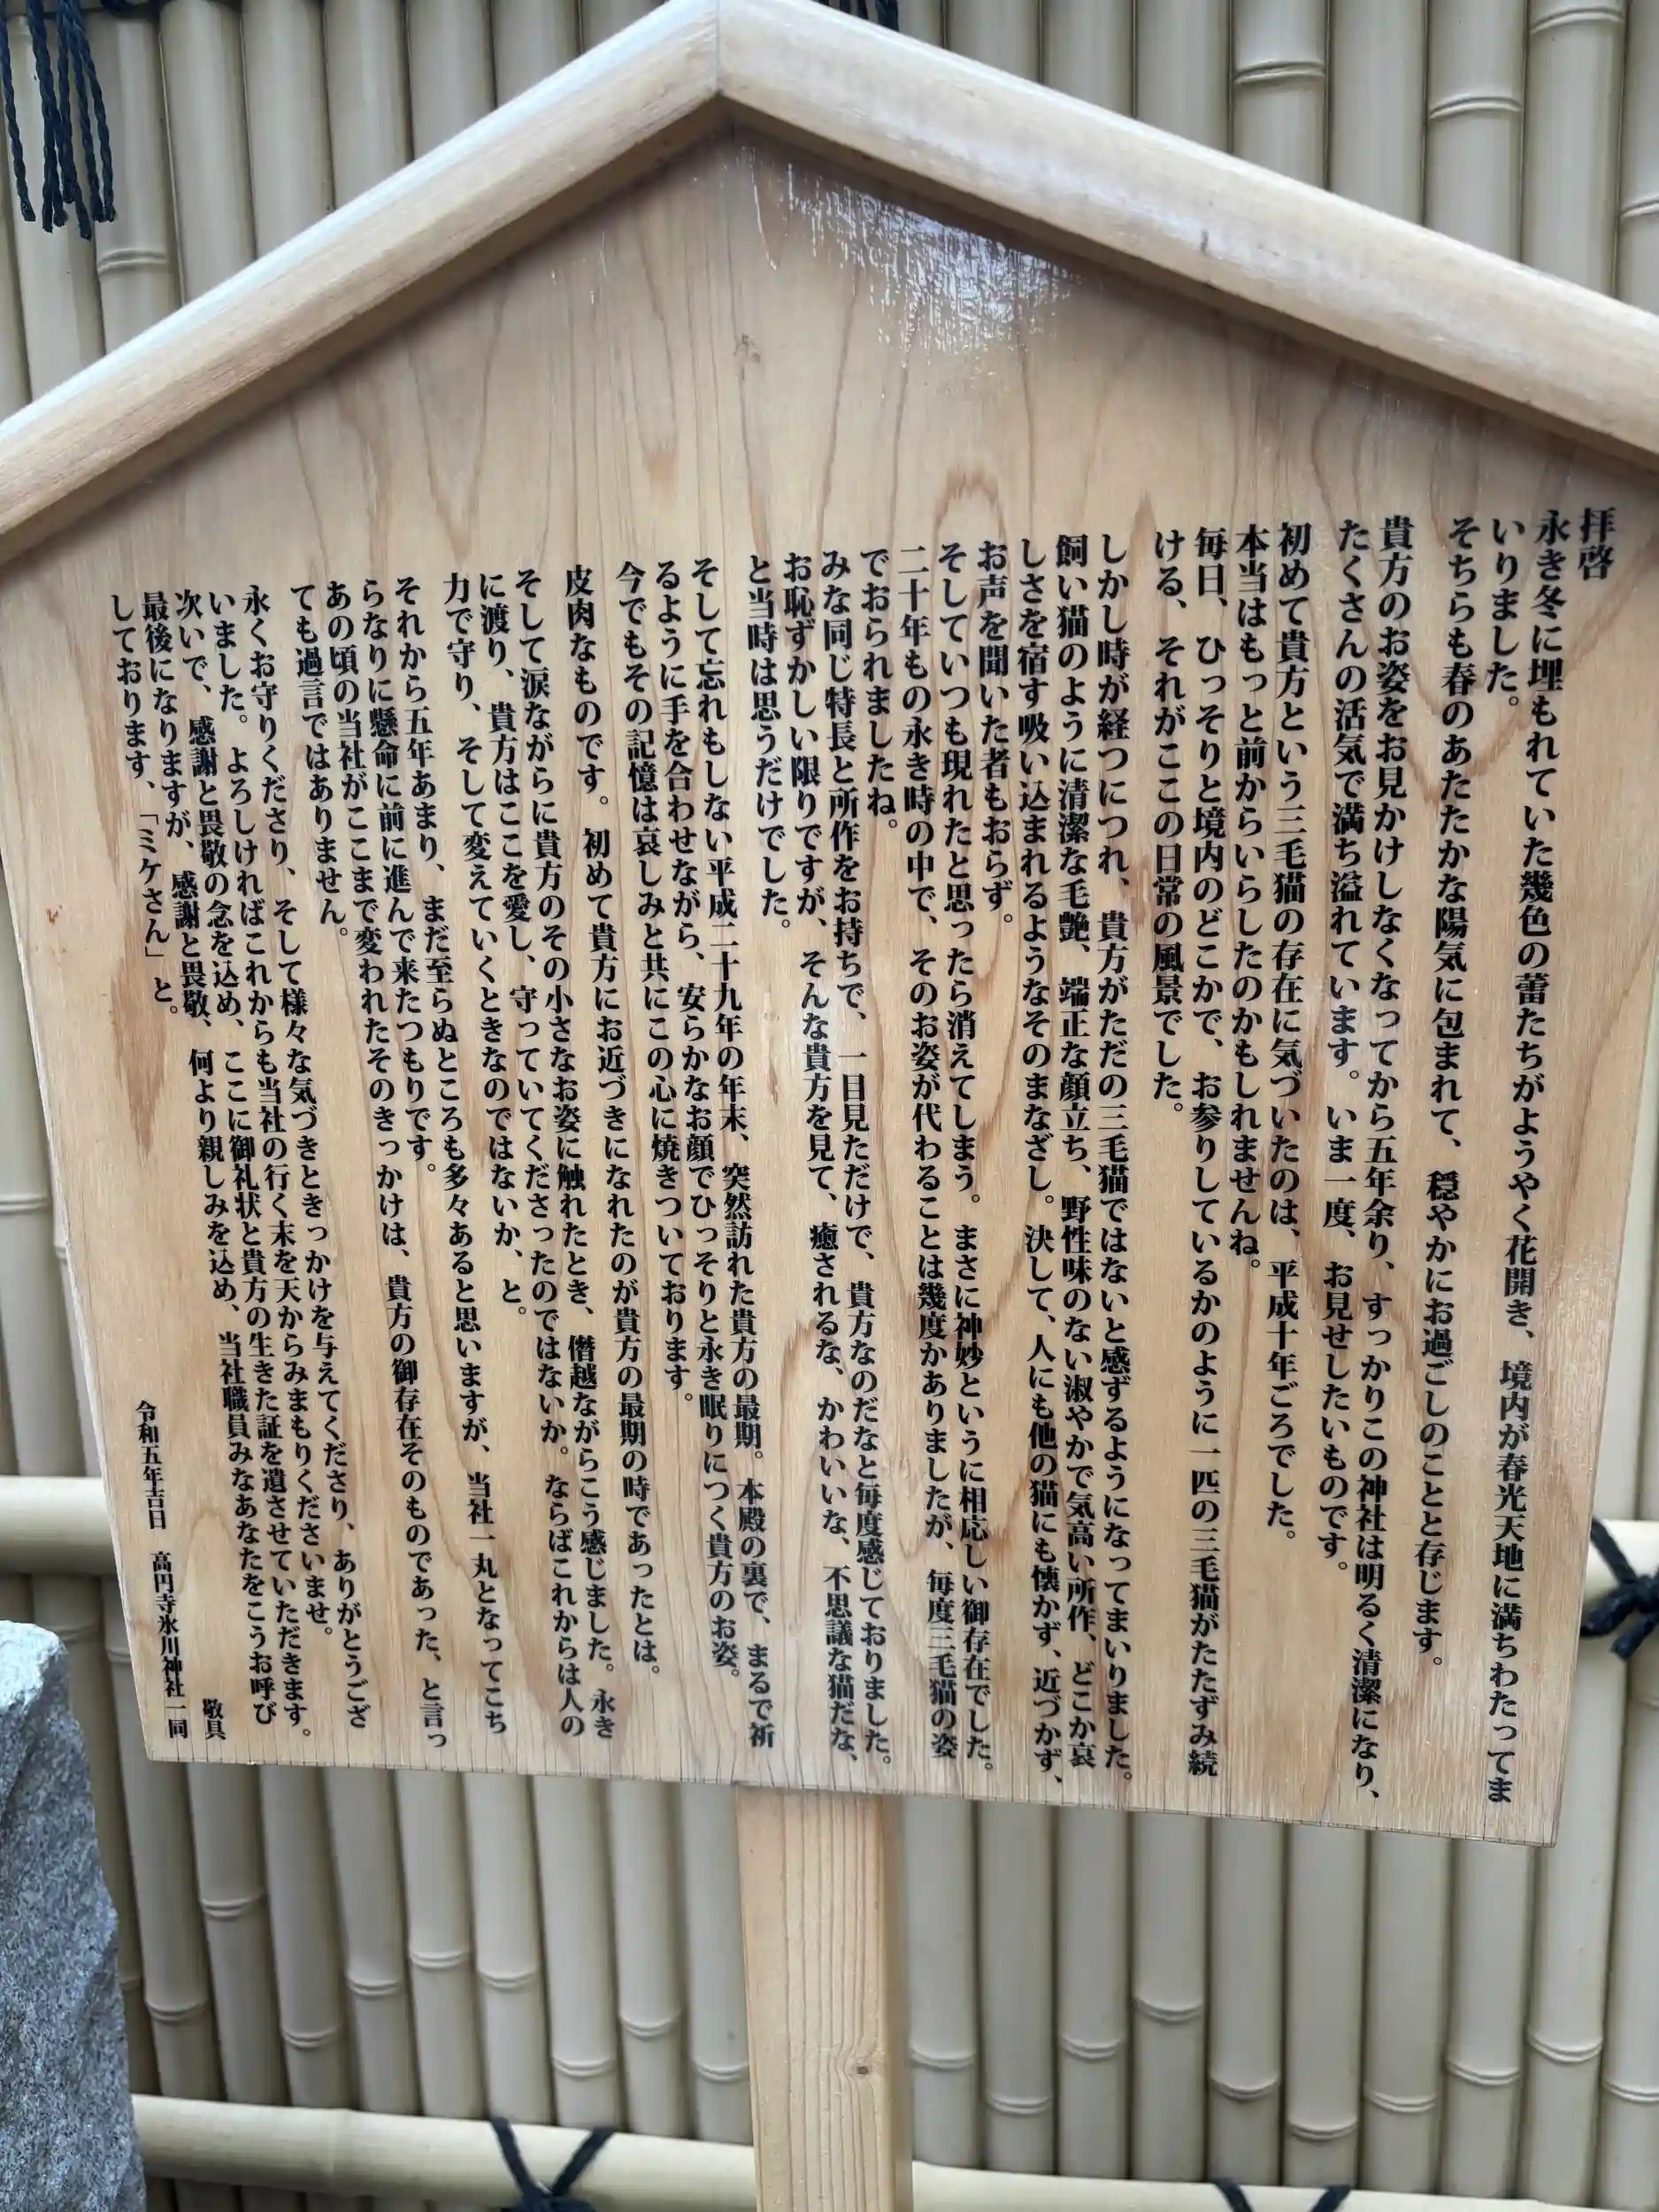 拝啓
永き冬に埋もれていた幾色の蕾たちがようやく花開き、境内が春光天地に満ちわたってま
いりました。
そちらも春のあたたかな陽気に包まれて、穏やかにお過ごしのことと存じます。
貴方のお姿をお見かけしなくなってから五年余り、すっかりこの神社は明るく清潔になり、
たくさんの活気で満ち溢れています。いま一度、お見せしたいものです。
初めて貴方という三毛猫の存在に気づいたのは、平成十年ごろでした。
本当はもっと前からいらしたのかもしれませんね。
毎日、ひっそりと境内のどこかで、お参りしているかのように一匹の三毛猫がたたずみ続
ける、それがここの日常の風景でした。
しかし時が経つにつれ、貴方がただの三毛猫ではないと感ずるようになってまいりました。
飼い猫のように清潔な毛艶、端正な顔立ち、野性味のない淑やかで気高い所作、どこか哀
しさを宿す吸い込まれるようなそのまなざし。決して、人にも他の猫にも懐かず、近づかず、
お声を聞いた者もおらず。
そしていつも現れたと思ったら消えてしまう。まさに神妙というに相応しい御存在でした。
二十年もの永き時の中で、そのお姿が代わることは幾度かありましたが、毎度三毛猫の姿
でおられましたね。
みな同じ特長と所作をお持ちで、一目見ただけで、貴方なのだなと毎度感じておりました。
お恥ずかしい限りですが、そんな貴方を見て、癒されるな、かわいいな、不思議な猫だな、
と当時は思うだけでした。
そして忘れもしない平成二十九年の年末、突然訪れた貴方の最期。本殿の裏で、まるで祈
るように手を合わせながら、安らかなお顔でひっそりと永き眠りにつく貴方のお姿。
今でもその記憶は哀しみと共にこの心に焼きついております。
皮肉なものです。初めて貴方にお近づきになれたのが貴方の最期の時であったとは。
そして涙ながらに貴方のその小さなお姿に触れたとき、僭越ながらこう感じました。永き
に渡り、貴方はここを愛し、守っていてくださったのではないか。ならばこれからは人の
力で守り、そして変えていくときなのではないか、と。
それから五年あまり、まだ至らぬところも多々あると思いますが、当社一丸となってこち
らなりに懸命に前に進んで来たつもりです。
あの頃の当社がここまで変われたそのきっかけは、貴方の御存在そのものであった、と言っ
ても過言ではありません。
永くお守りくださり、そして様々な気づきときっかけを与えてくださり、ありがとうござ
いました。よろしければこれからも当社の行く末を天からみまもりくださいませ。
次いで、感謝と畏敬の念を込め、ここに御礼状と貴方の生きた証を遺させていただきます。
最後になりますが、感謝と畏敬、何より親しみを込め、当社職員みなあなたをこうお呼び
しております、「ミケさん」と。
敬具
令和五年吉日 高円寺氷川神社一同